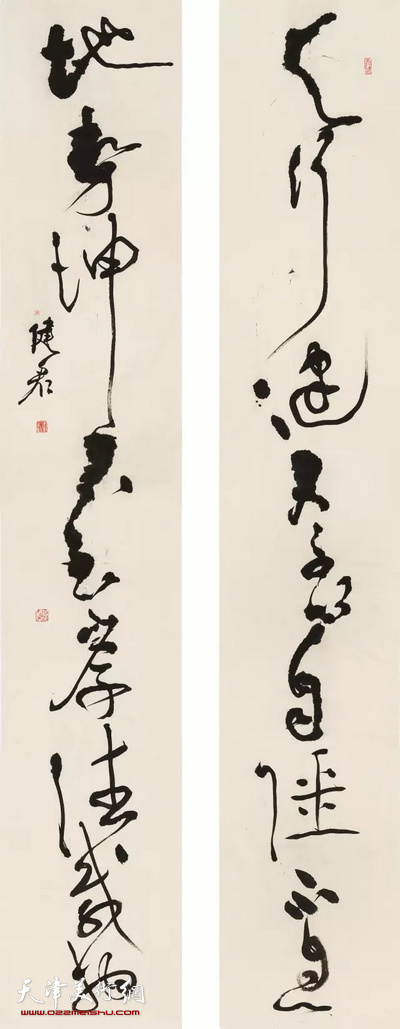 天行健君子以自彊不息
地勢坤君子以厚德載物
天津美术网
www.022meishu.com